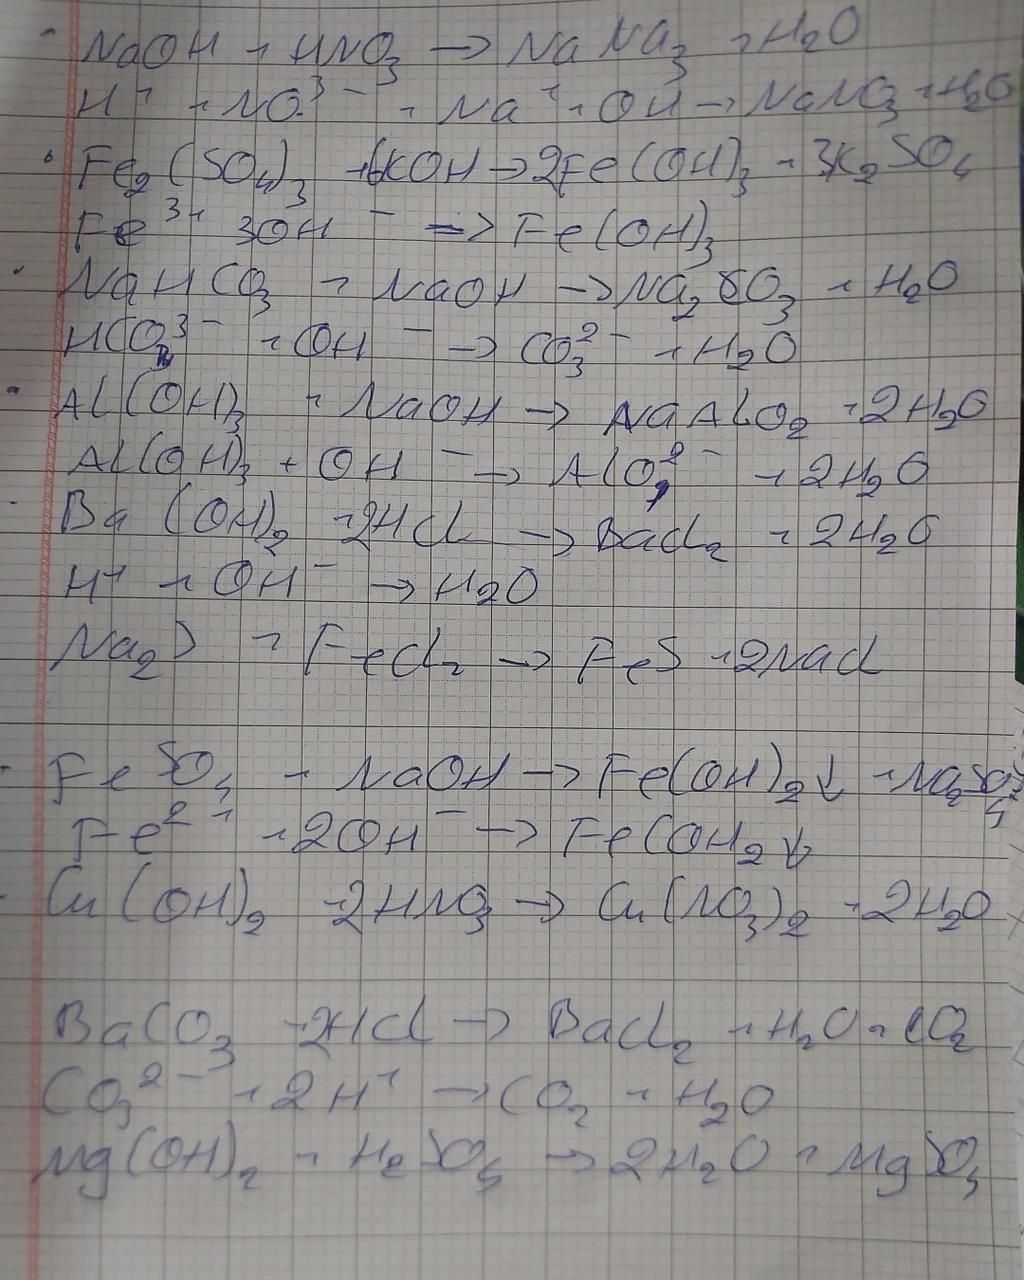 NaOH + HNO₃ → NaNa₃ + H₂O
H⁺ + NO³⁻ + Na⁺ + OH → NaNO₃ + H₂O
Fe₂(SO₄)₃ + 6KOH → 2Fe(OH)₃ + 3K₂SO₄
Fe³⁺ 3OH⁻ → Fe(OH)₃
NaHCO₃ + NaOH → Na₂CO₃ + H₂O
HCO₃³⁻ + OH⁻ → CO₃²⁻ + H₂O
Al(OH)₃ + NaOH → NaAlO₂ + 2H₂O
Al(OH)₃ + OH⁻ → AlO₂⁻ + 2H₂O
Ba(OH)₂ + 2HCl → BaCl₂ + 2H₂O
H⁺ + OH⁻ → H₂O
Na₂S + FeCl₂ → FeS + 2NaCl
FeSO₄ + NaOH → Fe(OH)₂↓ + Na₂SO₄
Fe²⁺ + 2OH⁻ → Fe(OH₂↓
Cu(OH)₂ + 2HNO₃ → Cu(NO₃)₂ + 2H₂O
BaCO₃ + 2HCl → BaCl₂ + H₂O + CO₂
CO₃²⁻ + 2H⁺ → CO₂ + H₂O
Mg(OH)₂ + H₂SO₄ → 2H₂O + MgSO₄